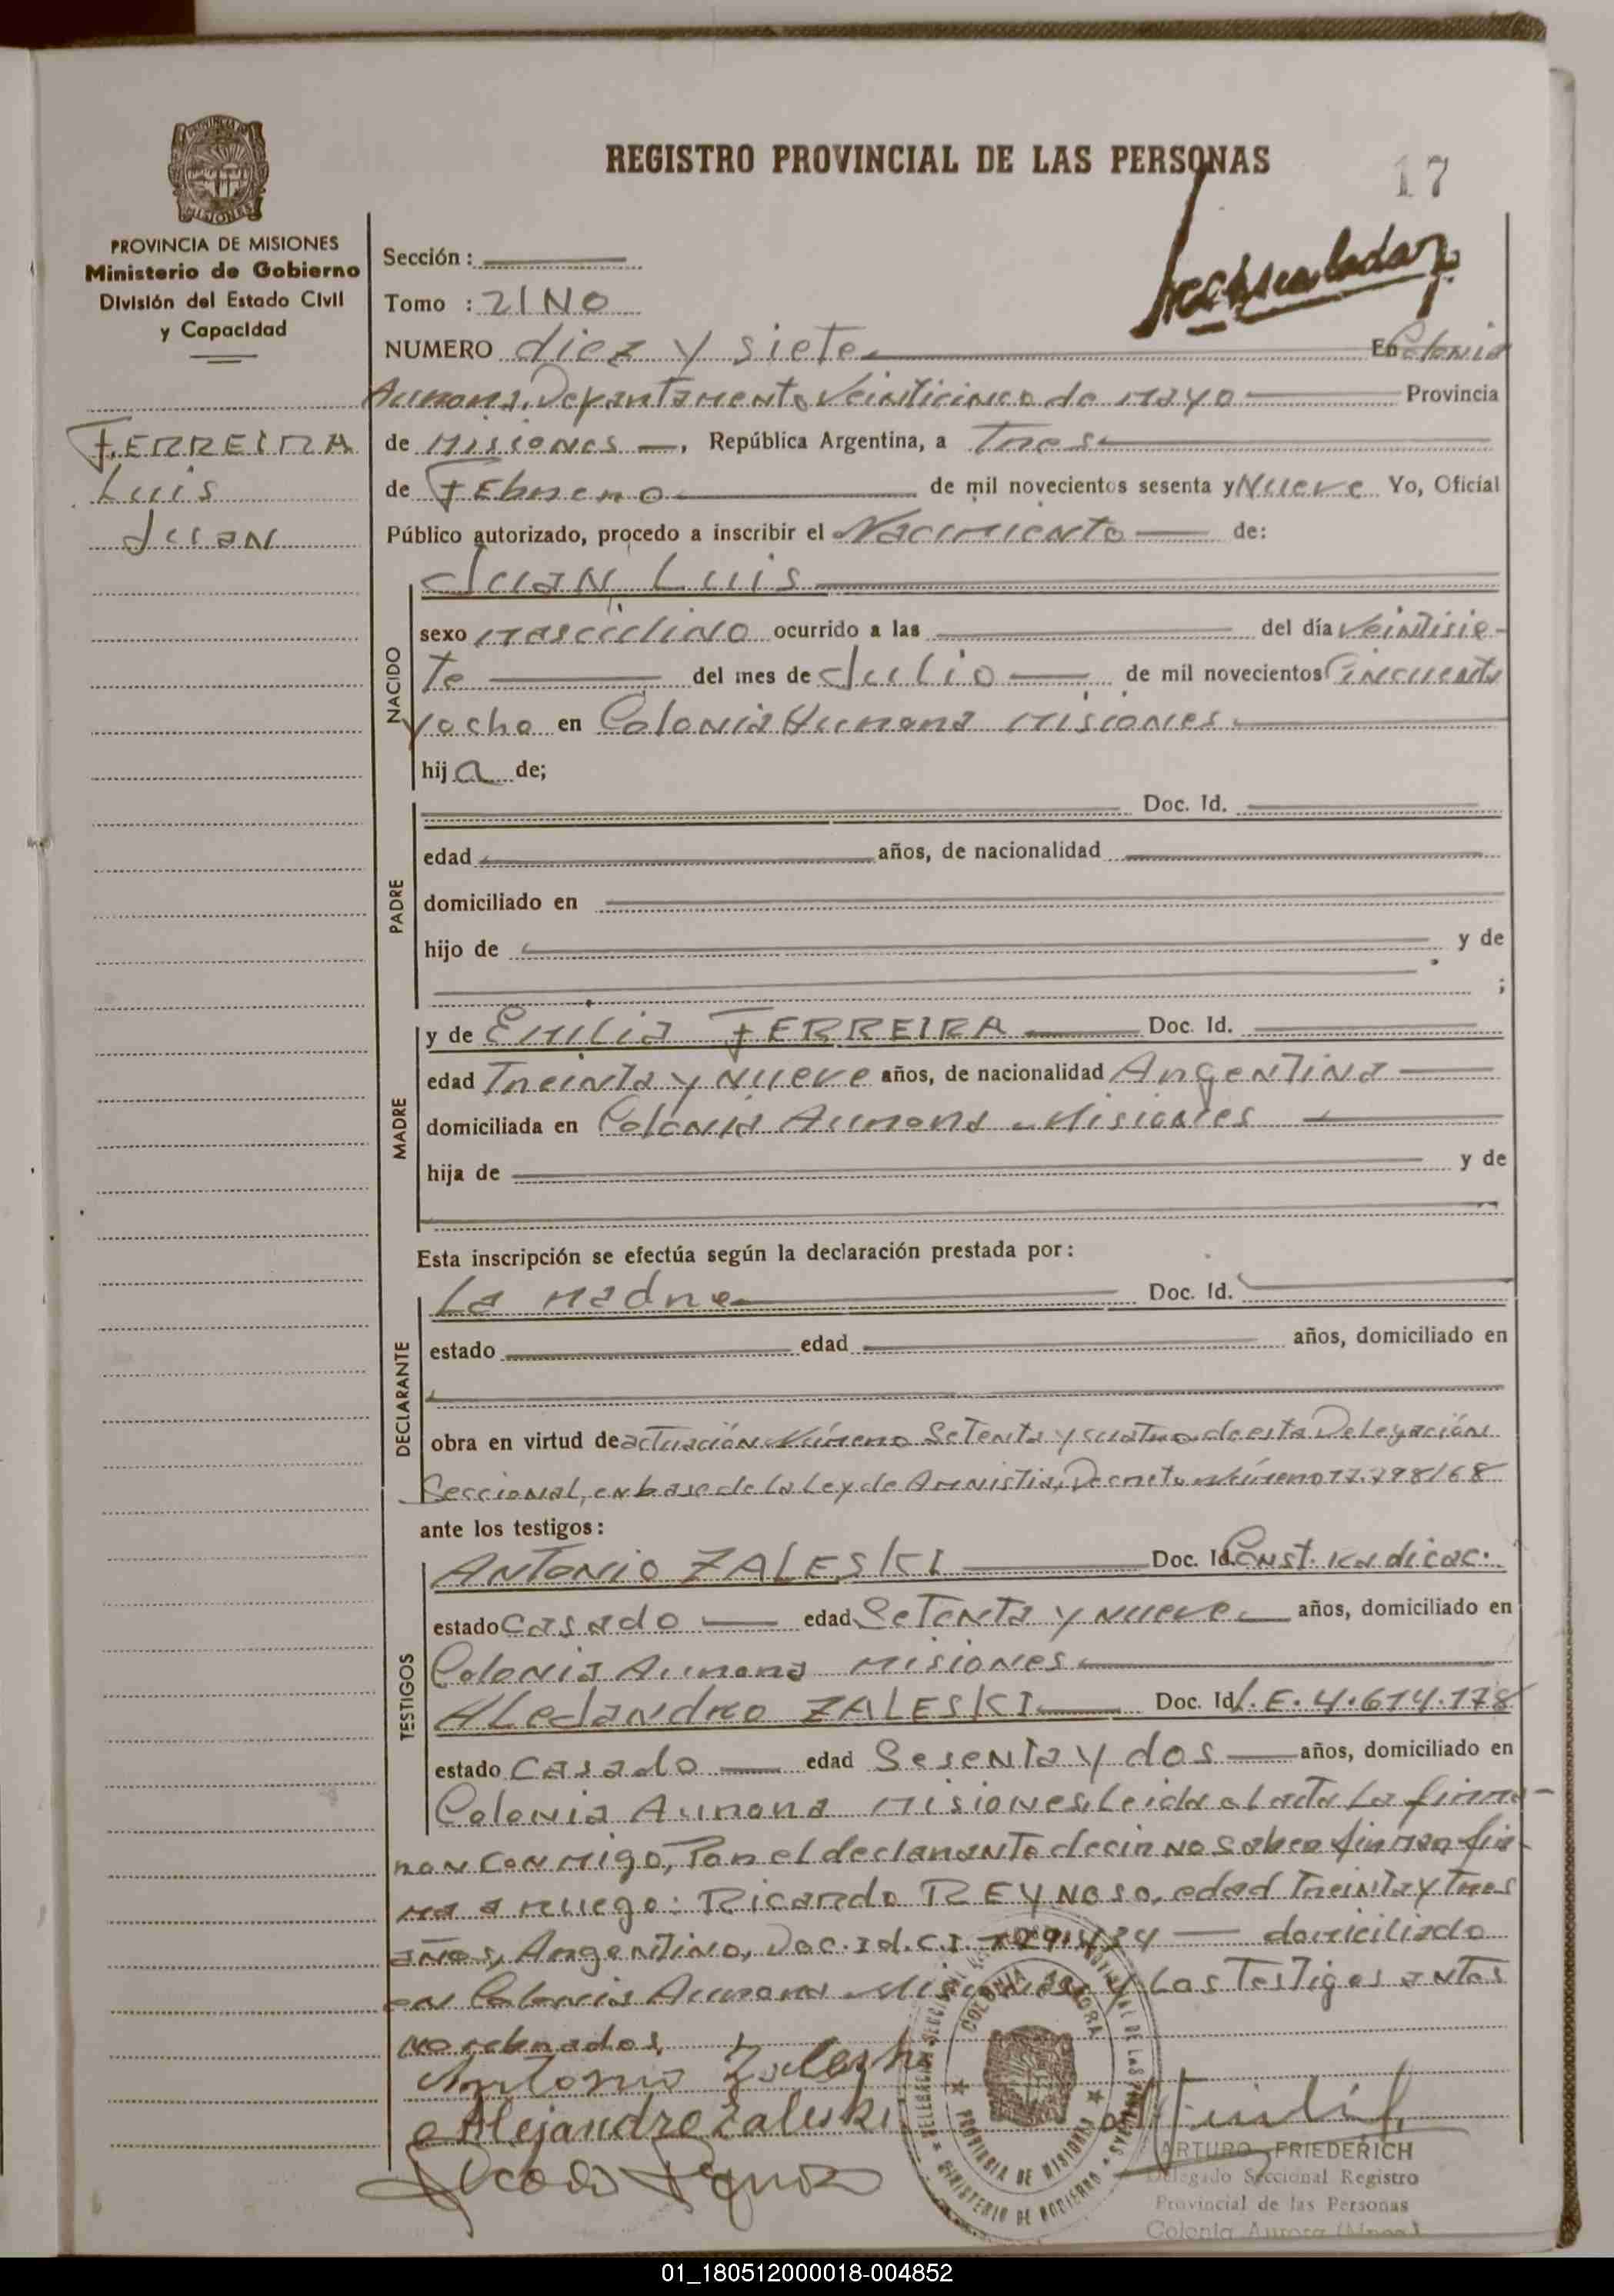 REGISTRO PROVINCIAL DE LAS PERSONAS
17
PROVINCIA DE MISIONES
Ministerio de Gobierno
División del Estado Civil
y Capacidad
FERREIRA
Luis
Juan
Sección :
Tomo : 21NO
NUMERO diez y siete En Colonia
Aurora, Departamento Veinticinco de Mayo Provincia
de Misiones, República Argentina, a Tres
de Febrero de mil novecientos sesenta y Nueve Yo, Oficial
Público autorizado, procedo a inscribir el Nacimiento de:
NACIDO
Juan Luis
sexo masculino ocurrido a las del día Veintisie-
te del mes de Julio de mil novecientos Cincuenta
y ocho en Colonia Aurora Misiones
hija de;
PADRE
Doc. Id.
edad años, de nacionalidad
domiciliado en
hijo de y de
;
MADRE
y de Emilia FERREIRA Doc. Id.
edad Treinta y Nueve años, de nacionalidad Argentina
domiciliada en Colonia Aurora - Misiones
hija de y de
Esta inscripción se efectúa según la declaración prestada por:
DECLARANTE
La Madre Doc. Id.
estado edad años, domiciliado en
obra en virtud de actuación Número Setenta y cuatro de esta Delegación
Seccional, en base de la Ley de Amnistia, Decreto Número 17.798/68
ante los testigos:
TESTIGOS
Antonio ZALESKI Doc. Id. Const. Radicac.
estado Casado edad Setenta y nueve años, domiciliado en
Colonia Aurora Misiones
Alejandro ZALESKI Doc. Id L.E. 4.614.178
estado Casado edad Sesenta y dos años, domiciliado en
Colonia Aurora Misiones, Leida el acta La firma-
ron conmigo, Por el declarante decir no saber firmar fir-
ma a ruego: Ricardo REYNOSO, edad Treinta y Tres
años, Argentino, Doc. Id. C.I. domiciliado
en Colonia Aurora Misiones y Los Testigos antes
nombrados.
Antonio Zaleski
Alejandro Zaleski
COLONIA AURORA
PROVINCIA DE MISIONES
MINISTERIO DE GOBIERNO
ARTURO FRIEDERICH
Delegado Seccional Registro
Provincial de las Personas
Colonia Aurora (Mnes.)
01_180512000018-004852